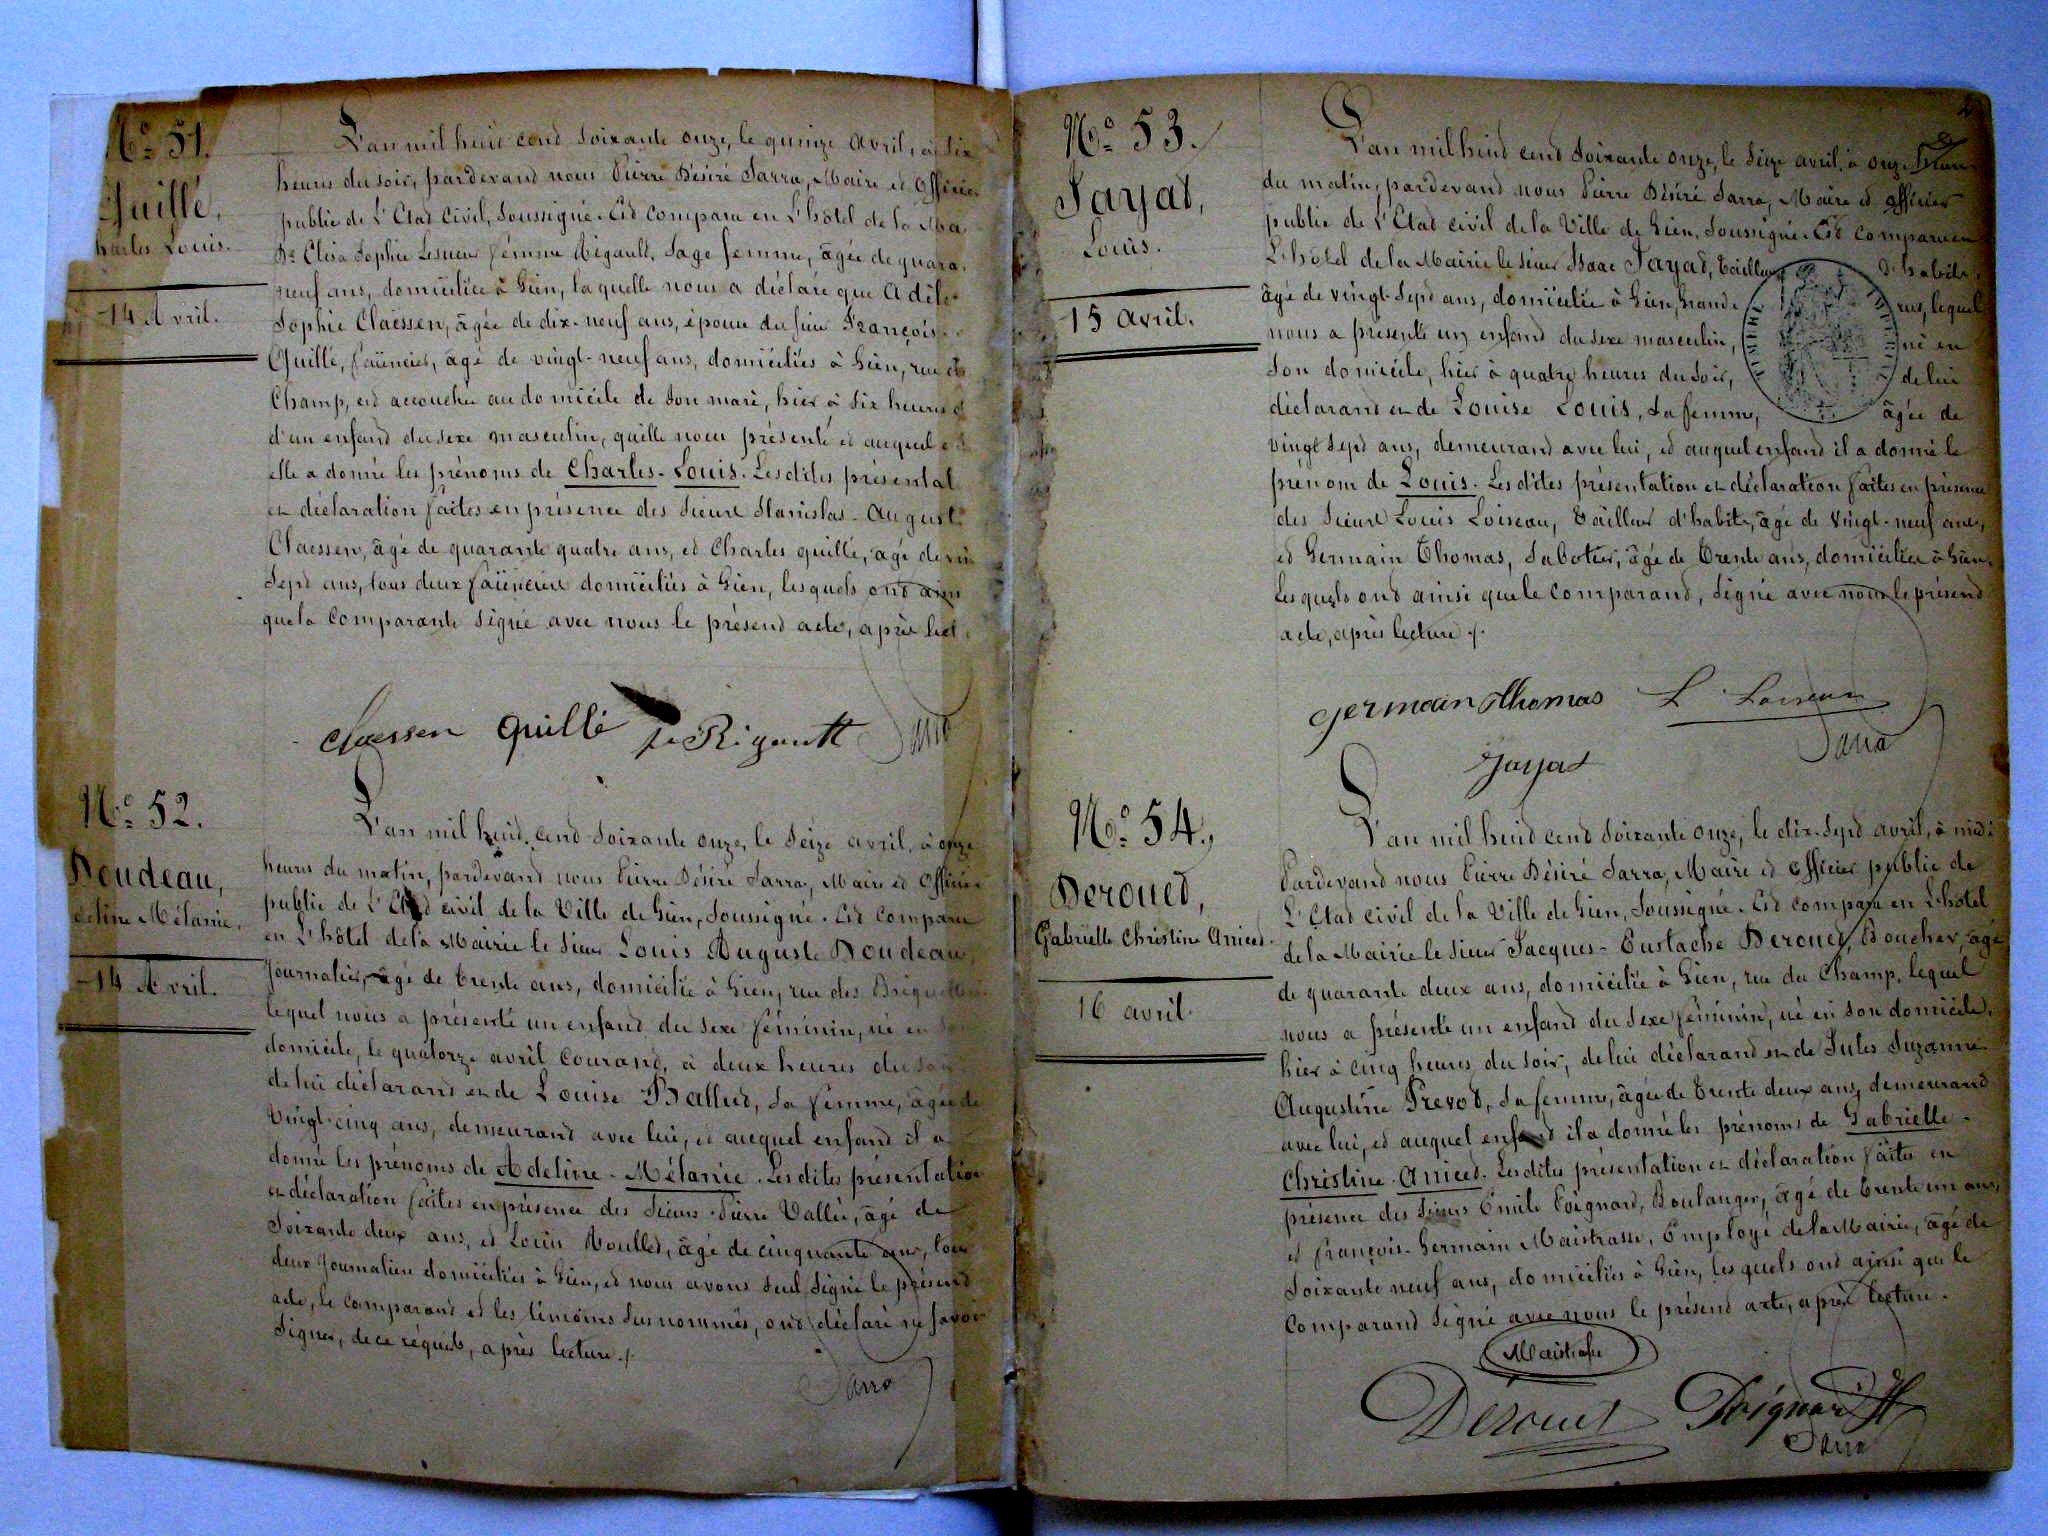 No 51.
Quillé,
harles Louis.
14 Avril.
L'an mil huit cent soixante onze, le quinze avril, à six
heures du soir, pardevant nous Pierre Désiré Sarra, Maire et Officier
public de L'Etat Civil, soussigné. Est comparu en L'hôtel de la Ma
De Elisa Sophie Lesueur femme Rigault, Sage femme, âgée de quara
neuf ans, domiciliée à Gien, laquelle nous a déclaré que Adèle
Sophie Claessen, âgée de dix-neuf ans, épouse du sieur François
Quillé, faïencier, âgé de vingt-neuf ans, domiciliés à Gien, rue du
Champ, est accouchée au domicile de son mari, hier à six heures d
d'un enfant du sexe masculin, quelle nous présente et auquel
elle a donné les prénoms de Charles-Louis. Lesdites présentat
et déclaration faites en présence des sieurs Stanislas-August
Claessen, âgé de quarante quatre ans, et Charles quillé, âgé de vin
sept ans, tous deux faïenciers domiciliés à Gien, lesquels ont ainsi
que la Comparante signé avec nous le présent acte, après lect
Claessen Quillé fe Rigault Sarra
No 52.
Doudeau,
deline Mélanie.
14 Avril.
L'an mil huit cent soixante onze, le seize avril, à onze
heures du matin, pardevant nous Pierre Désiré Sarra, Maire et Officier
public de L'Etat civil de la Ville de Gien, soussigné. Est comparu
en L'hôtel de la Mairie le sieur Louis Auguste Doudeau,
Journalier, âgé de trente ans, domicilié à Gien, rue des
lequel nous a présenté un enfant du sexe féminin, né en
domicile, le quatorze avril courant, à deux heures du soir
de lui déclarant et de Louise Ballut, sa femme, âgée de
vingt-cinq ans, demeurant avec lui, et auquel enfant il a
donné les prénoms de Adeline-Mélanie. Lesdites présentation
et déclaration faites en présence des sieurs Pierre Vallée, âgé de
soixante deux ans, et Louis âgé de cinquante ans, tous
deux Journaliers domiciliés à Gien, et nous avons seul signé le présent
acte, le comparant et les témoins susnommés, ont déclaré ne savoir
signer, de ce requis, après lecture ./.
Sarra
No 53.
Jayat,
Louis.
15 avril.
L'an mil huit cent soixante onze, le seize avril, à onze heures
du matin, pardevant nous Pierre Désiré Sarra, Maire et officier
public de L'Etat civil de la Ville de Gien, soussigné. Est comparu en
L'hôtel de la Mairie le sieur Isaac Jayat, tailleur d'habits,
âgé de vingt-sept ans, domicilié à Gien, Grande rue, lequel
nous a présenté un enfant du sexe masculin, né en
son domicile, hier à quatre heures du soir, de lui
déclarant et de Louise Louis, sa femme, âgée de
vingt sept ans, demeurant avec lui, et auquel enfant il a donné le
prénom de Louis. Lesdites présentation et déclaration faites en présence
des sieurs Louis Loiseau, tailleur d'habits, âgé de vingt-neuf ans,
et Germain Thomas, sabotier, âgé de trente ans, domiciliés à Gien,
Lesquels ont ainsi que le Comparant, signé avec nous le présent
acte, après lecture ./.
TIMBRE IMPERIAL
germain thomas L Loiseau
Jayat Sarra
No 54.
Derouet,
Gabrielle Christine Anicet.
16 avril.
L'an mil huit cent soixante onze, le dix-sept avril, à midi
Pardevant nous Pierre Désiré Sarra, Maire et officier public de
L'Etat civil de la Ville de Gien, soussigné. Est comparu en L'hôtel
de la Mairie le sieur Jacques-Eustache Derouet, Boucher, âgé
de quarante deux ans, domicilié à Gien, rue du Champ, lequel
nous a présenté un enfant du sexe féminin, né en son domicile,
hier à cinq heures du soir, de lui déclarant et de Jules Suzanne
Augustine Prevot, sa femme, âgée de trente deux ans, demeurant
avec lui, et auquel enfant il a donné les prénoms de Gabrielle-
Christine-Anicet. Lesdites présentation et déclaration faites en
présence des sieurs Emile Poignard, Boulanger, âgé de trente un ans,
et François-Germain Maistrasse, Employé de la Mairie, âgé de
soixante neuf ans, domiciliés à Gien, lesquels ont ainsi que le
Comparant signé avec nous le présent acte, après lecture.
Maistrasse
Dérouet Poignard
Sarra